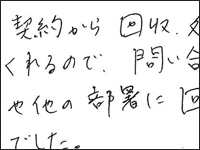 契約から回収、
くれるので、問い合
や他の部署に回
でした。